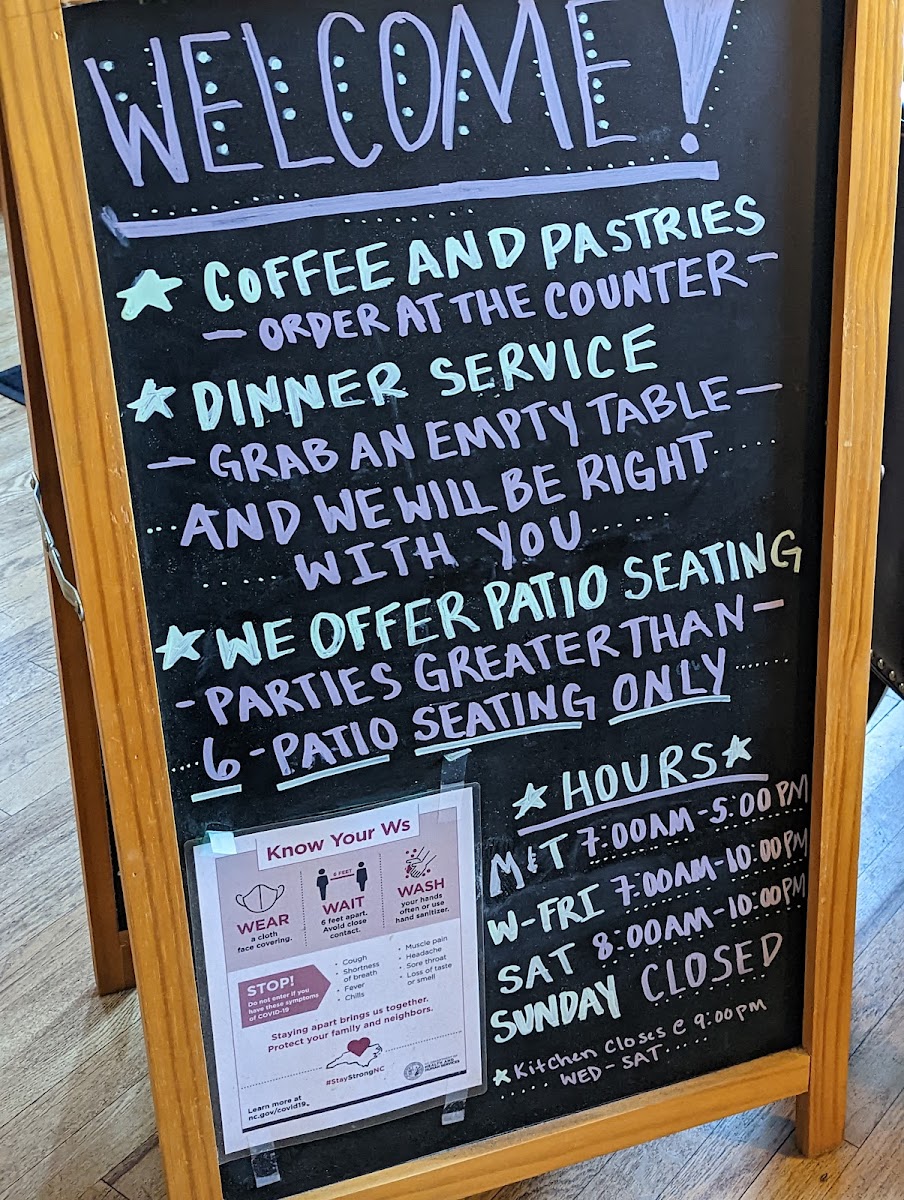 WELCOME!
COFFEE AND PASTRIES
- ORDER AT THE COUNTER -
DINNER SERVICE
- GRAB AN EMPTY TABLE -
AND WE WILL BE RIGHT
WITH YOU
WE OFFER PATIO SEATING
- PARTIES GREATER THAN -
6 - PATIO SEATING ONLY
HOURS
M & T 7:00AM-5:00PM
W-FRI 7:00AM-10:00PM
SAT 8:00AM-10:00PM
SUNDAY CLOSED
Kitchen Closes @ 9:00PM
WED - SAT
Know Your Ws
WEAR
a cloth
face covering.
6 FEET
WAIT
6 feet apart.
Avoid close
contact.
WASH
your hands
often or use
hand sanitizer.
STOP!
Do not enter if you
have these symptoms
of COVID-19
• Cough
• Shortness
of breath
• Fever
• Chills
• Muscle pain
• Headache
• Sore throat
• Loss of taste
or smell
Staying apart brings us together.
Protect your family and neighbors.
#StayStrongNC
HEALTH AND
HUMAN SERVICES
Learn more at
nc.gov/covid19.